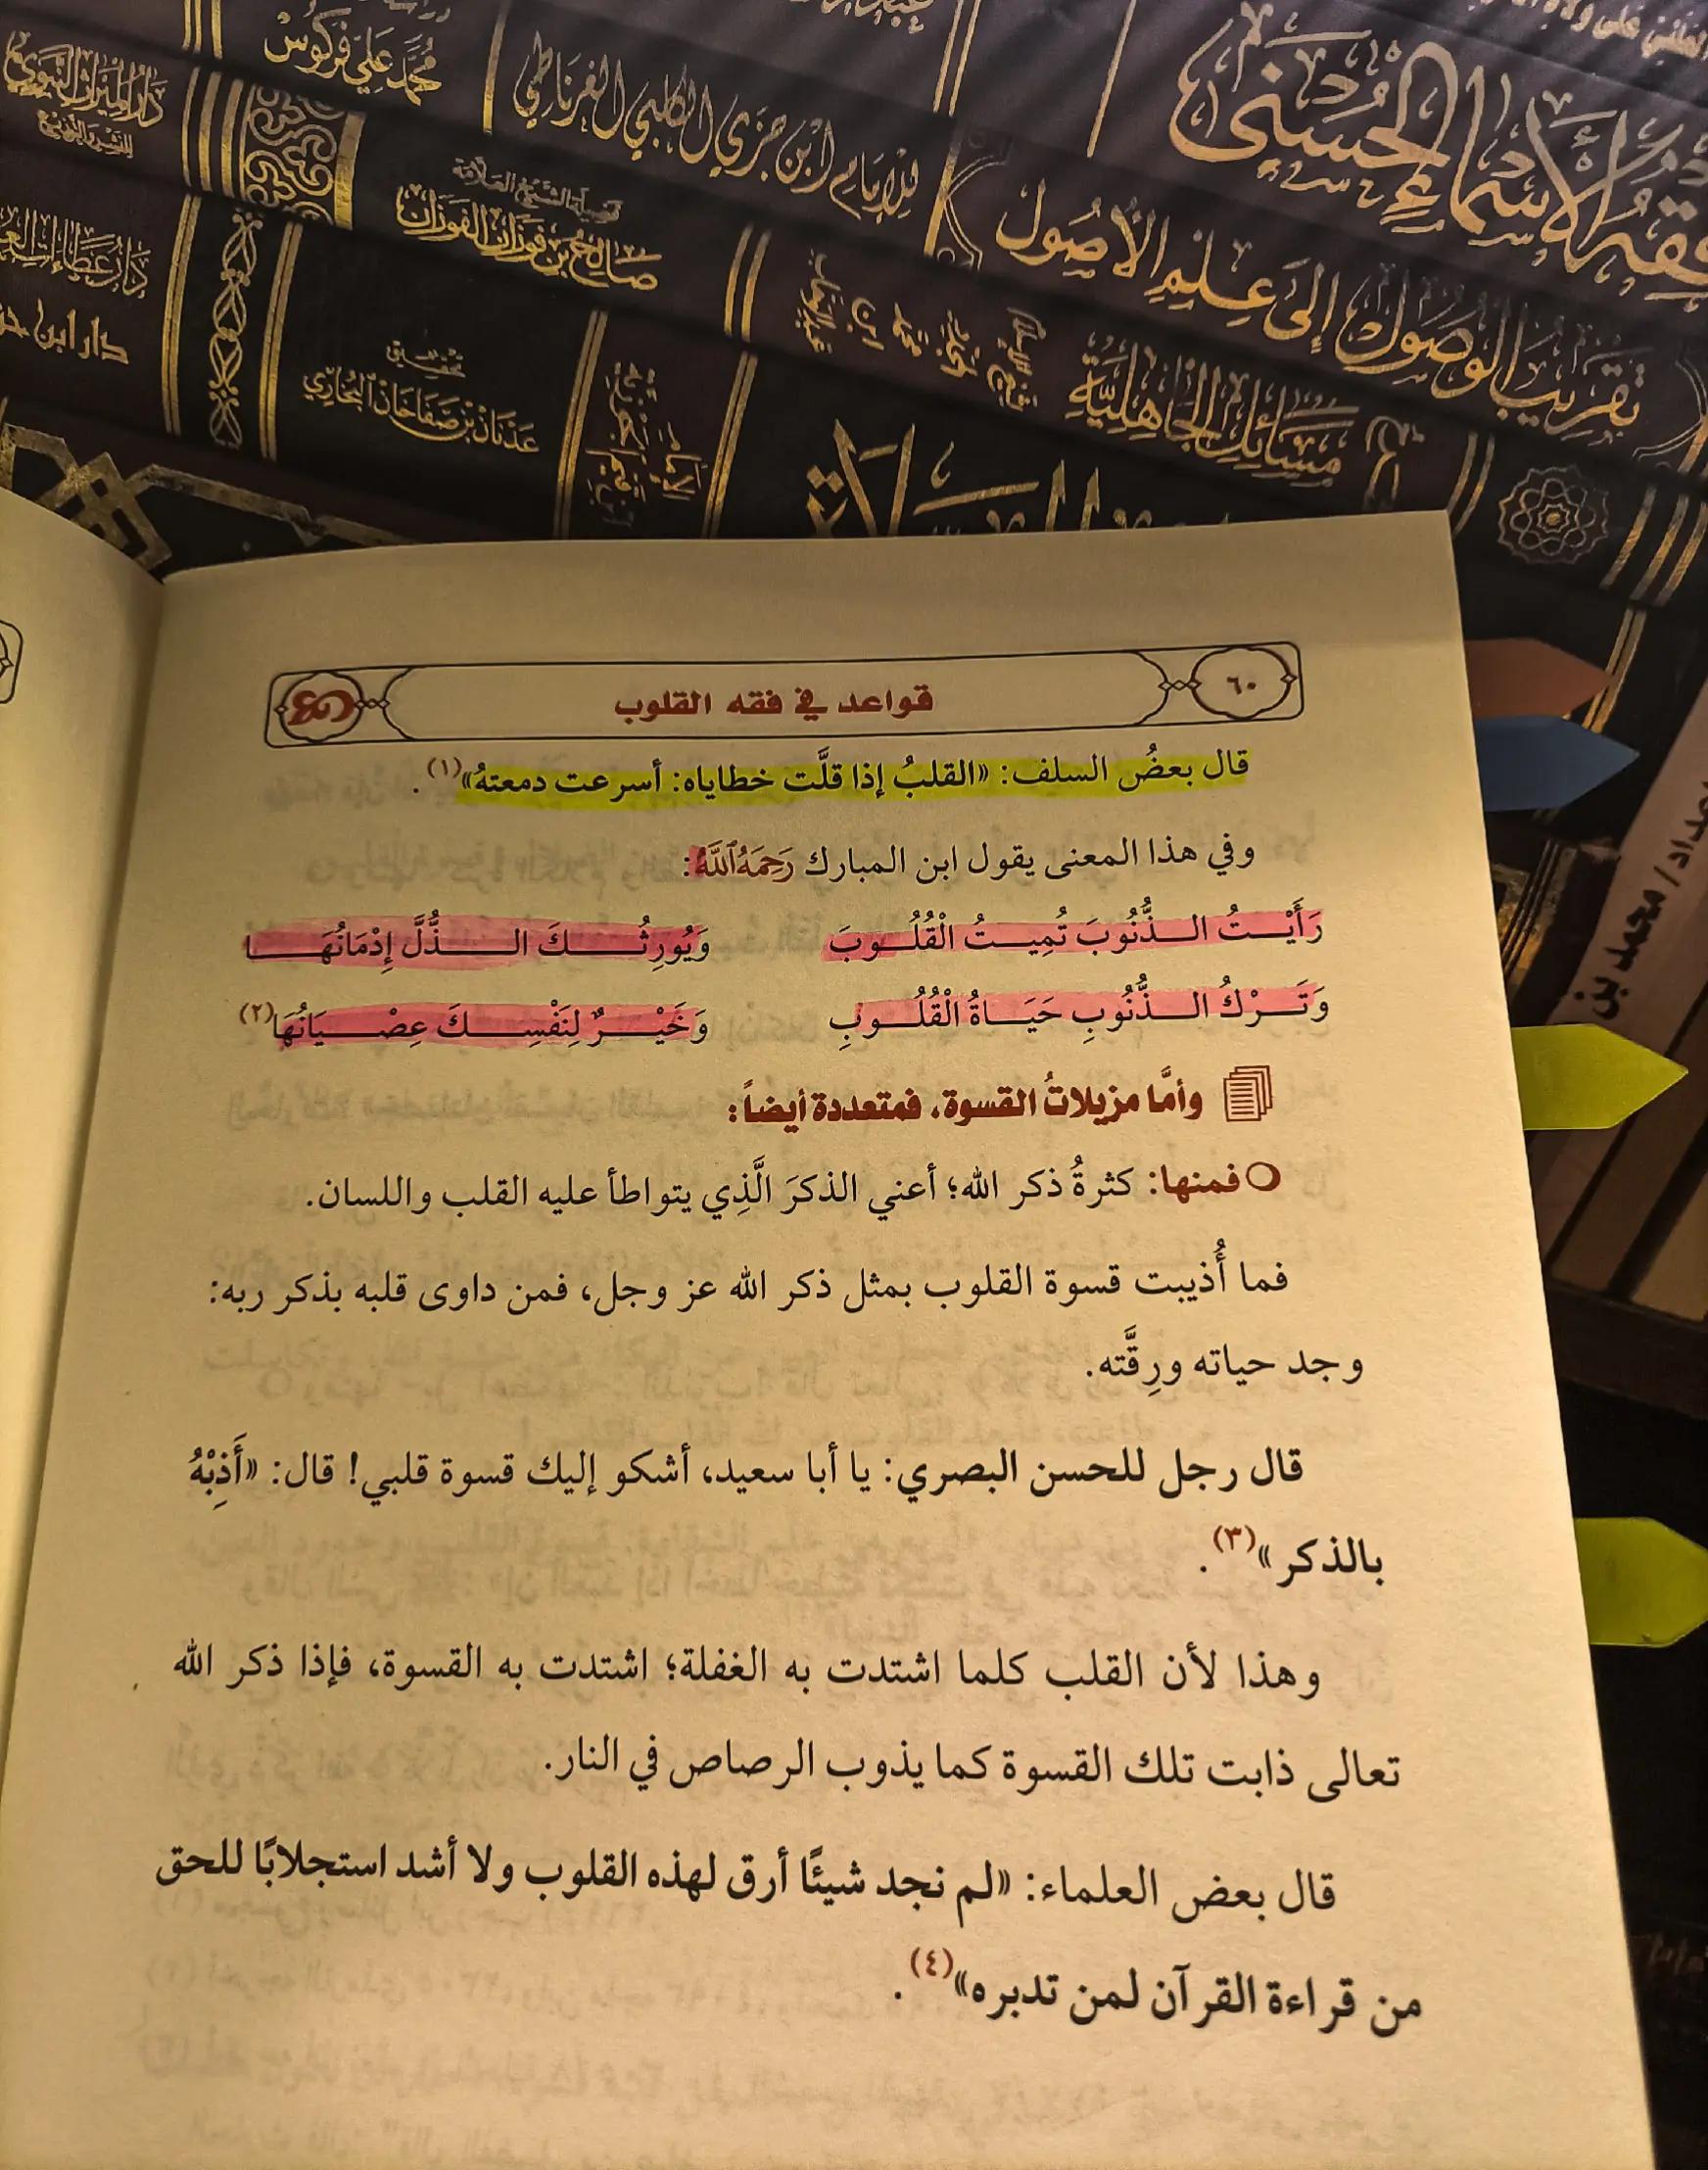 فقه الأسماء الحسنى
تقريب الوصول إلى علم الأصول
للإمام ابن جزي الكلبي الغرناطي
محمد علي فركوس
دار الميراث النبوي
للنشر والتوزيع
مسائل الجاهلية
فضيلة الشيخ العلامة
صالح بن فوزان الفوزان
تحقيق
عدنان بن صفاخان البخاري
الإمام
ابن قيم الجوزية
دار ابن
محمد بن
٦٠
قواعد في فقه القلوب
قال بعضُ السلف: «القلبُ إذا قلَّت خطاياه: أسرعت دمعتهُ»(١).
وفي هذا المعنى يقول ابن المبارك رَحِمَهُ ٱللَّهُ:
رَأَيْتُ الذُّنُوبَ تُمِيتُ الْقُلُوبَ وَيُورِثُكَ الذُّلَّ إِدْمَانُهَا
وَتَرْكُ الذُّنُوبِ حَيَاةُ الْقُلُوبِ وَخَيْرٌ لِنَفْسِكَ عِصْيَانُهَا(٢)
وأمَّا مزيلاتُ القسوة، فمتعددة أيضاً:
فمنها: كثرةُ ذكر الله؛ أعني الذكرَ الَّذِي يتواطأ عليه القلب واللسان.
فما أُذيبت قسوة القلوب بمثل ذكر الله عز وجل، فمن داوى قلبه بذكر ربه:
وجد حياته ورِقَّته.
قال رجل للحسن البصري: يا أبا سعيد، أشكو إليك قسوة قلبي! قال: «أَذِبْهُ
بالذكر»(٣).
وهذا لأن القلب كلما اشتدت به الغفلة؛ اشتدت به القسوة، فإذا ذكر الله
تعالى ذابت تلك القسوة كما يذوب الرصاص في النار.
قال بعض العلماء: «لم نجد شيئًا أرق لهذه القلوب ولا أشد استجلابًا للحق
من قراءة القرآن لمن تدبره»(٤).